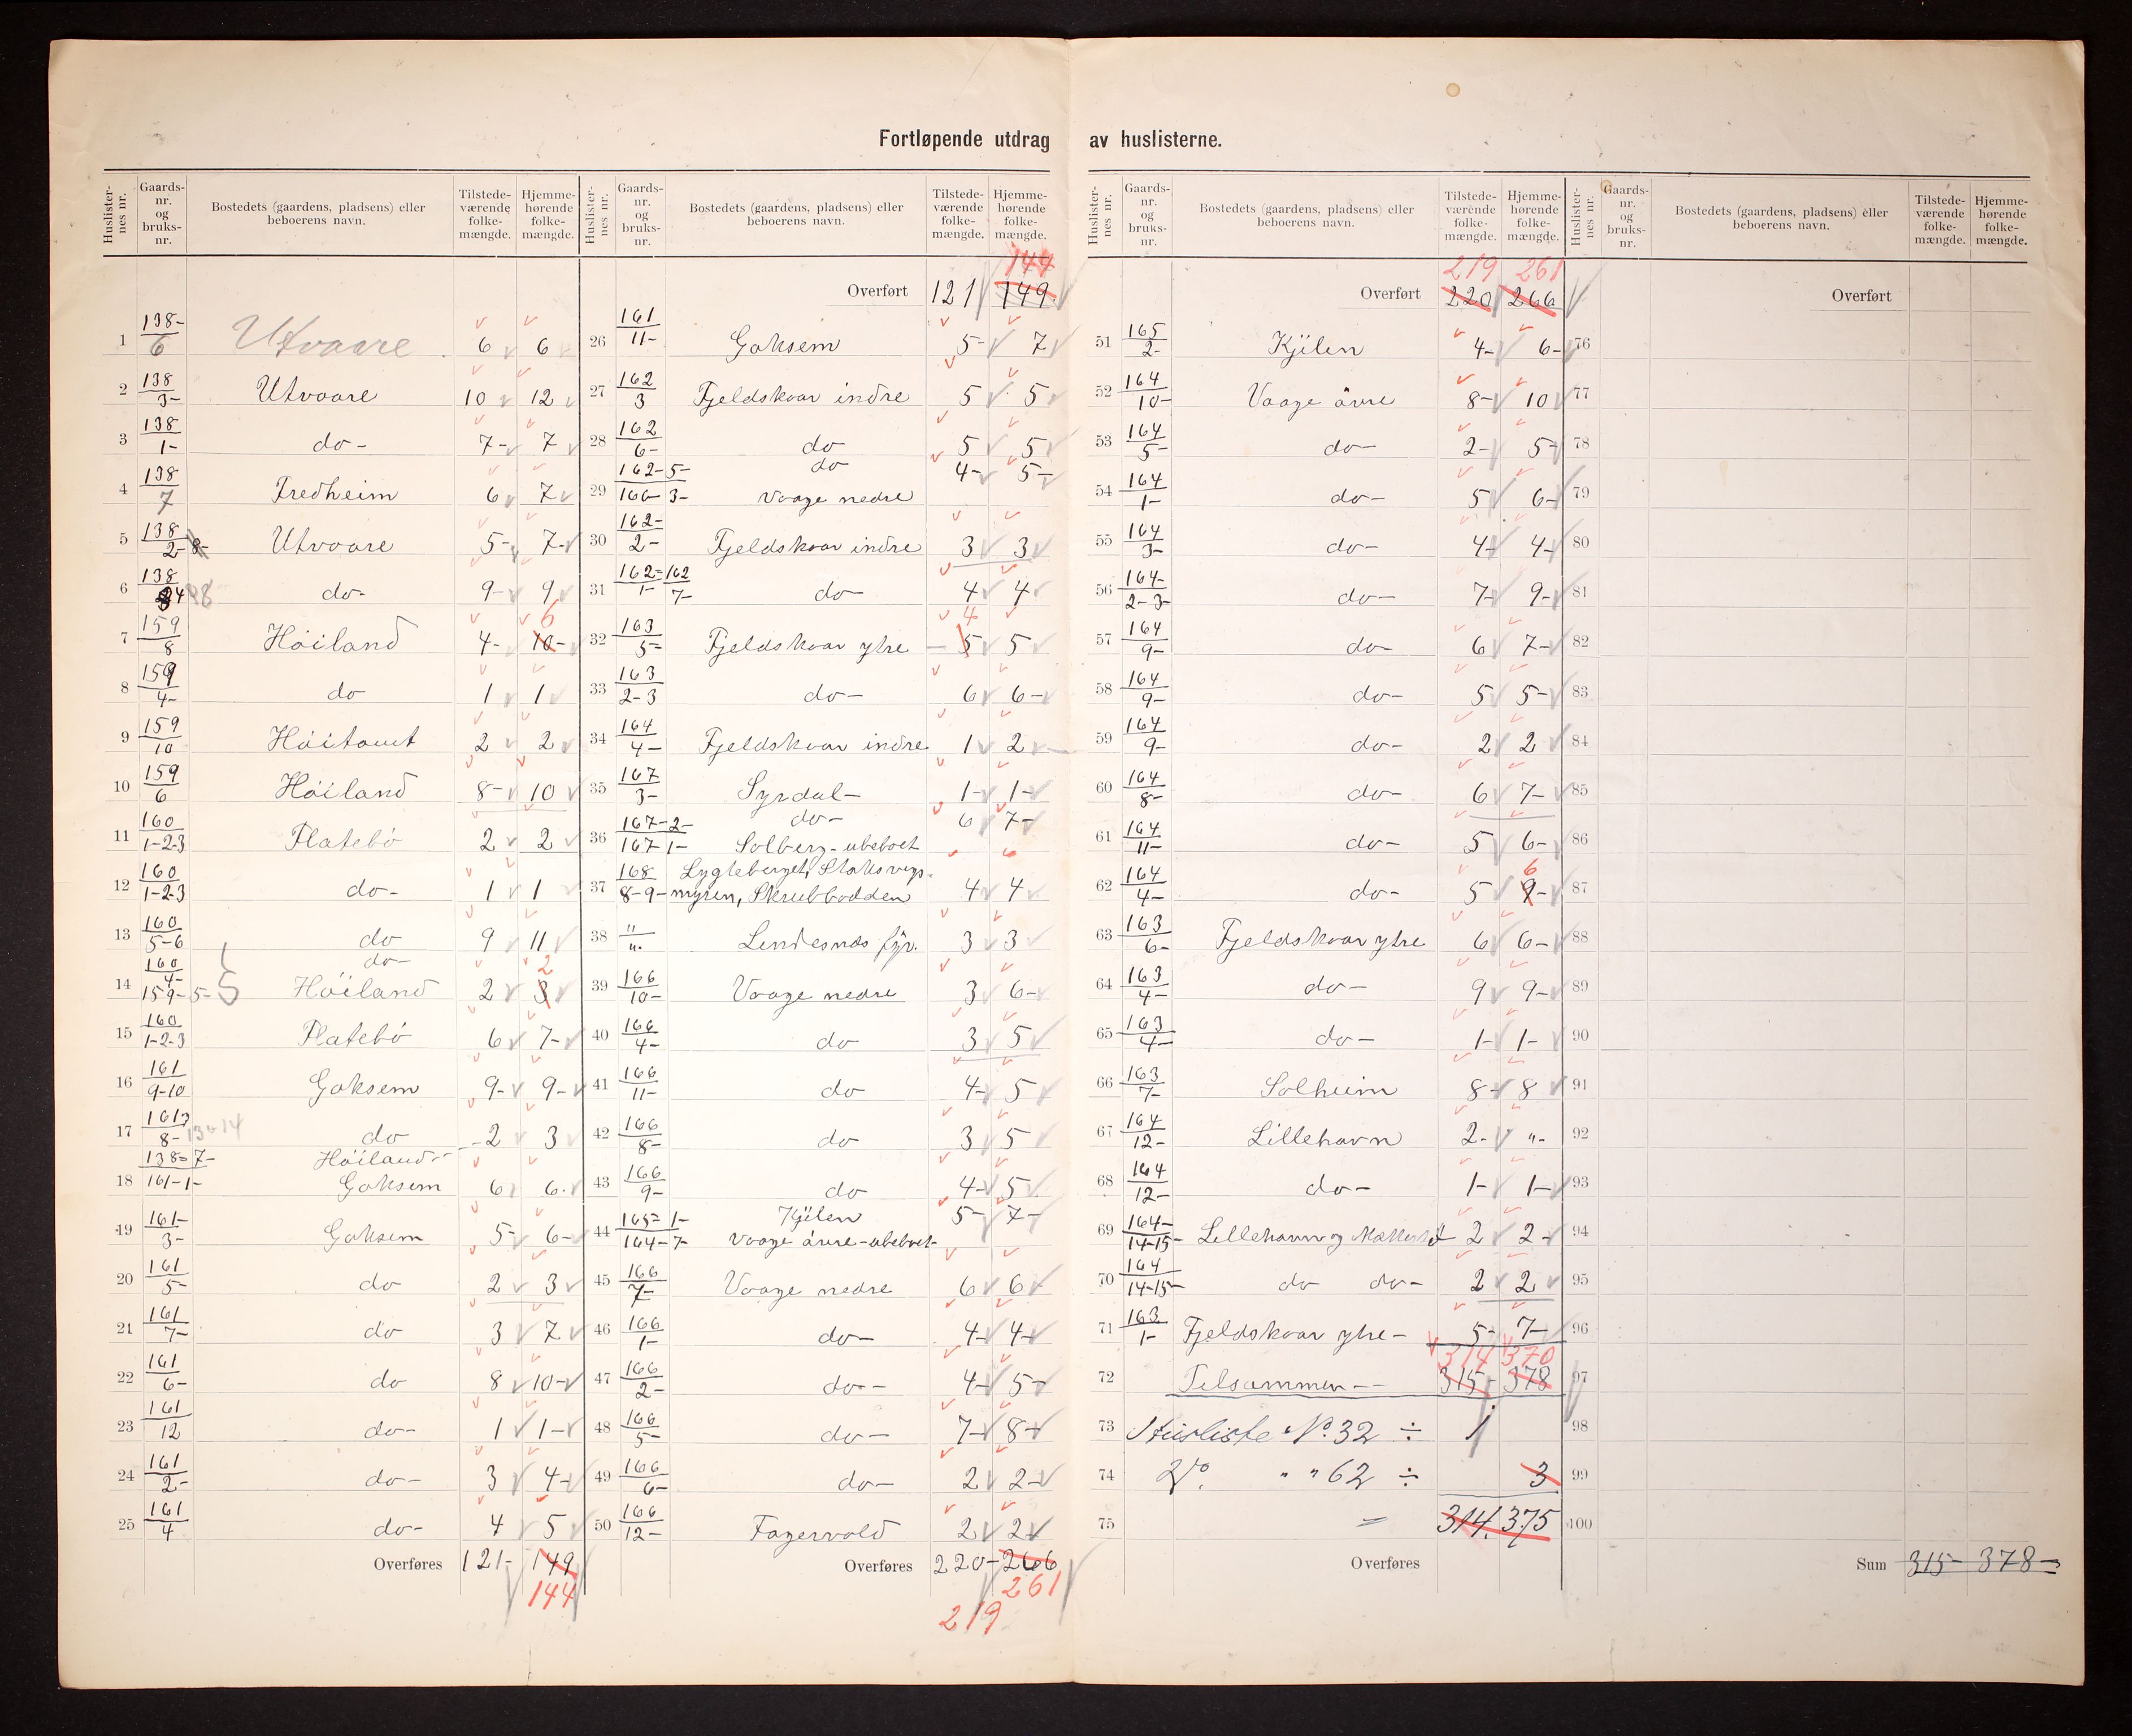 Fortløpende utdrag av huslisterne.
Huslister-nes nr. Gaards-nr. og bruks-nr. Bostedets (gaardens, pladsens) eller beboerens navn. Tilstede-værende folke-mængde. Hjemme-hørende folke-mængde.
1 138-/6 Utvaare 6 6
2 138/3- Utvaare 10 12
3 138/1- do- 7- 7
4 138/7 Fredheim 6 7
5 138/2-8- Utvaare 5- 7-
6 138/4 do- 9- 9
7 159/8 Höiland 4- 10- 6
8 159/4- do 1 1
9 159/10 Höitomt 2 2
10 159/6 Höiland 8- 10
11 160/1-2-3 Platebö 2 2
12 160/1-2-3 do- 1 1
13 160/5-6 do 9 11
14 160/4- do-
159-5- Höiland 2 3 2
15 160/1-2-3 Platebö 6 7-
16 161/9-10 Goksem 9- 9-
17 161/8- 13-14 do 2 3
18 138-7- Höiland-
161-1- Goksem 6 6
19 161-/3- Goksem 5- 6-
20 161/5- do 2 3
21 161/7- do 3 7
22 161/6- do 8 10-
23 161/12 do- 1 1-
24 161/2- do- 3 4-
25 161/4 do- 4 5
Overføres 121- 149
144
Huslister-nes nr. Gaards-nr. og bruks-nr. Bostedets (gaardens, pladsens) eller beboerens navn. Tilstede-værende folke-mængde. Hjemme-hørende folke-mængde.
144
Overført 121 149
26 161/11- Goksem 5- 7
27 162/3 Fjeldskaar indre 5 5
28 162/6- do 5 5
29 162-5- do 4- 5-
166-3- Vaage nedre
30 162-/2- Fjeldskaar indre 3 3
31 162=162/1- 7- do- 4 4
32 163/5- Fjeldskaar ytre 5 4 5
33 163/2-3 do- 6 6-
34 164/4- Fjeldskaar indre 1 2
35 167/3- Syrdal- 1- 1-
36 167-2- do- 6 7-
167-1- Solberg-ubeboet
37 168 Lygteberget, Staksvegs-
8-9- myren, Skrubbodden 4 4
38 "/" Lindesnæs fyr. 3 3
39 166/10- Vaage nedre 3 6-
40 166/4- do 3 5
41 166/11- do 4- 5
42 166/8- do 3 5
43 166/9- do 4- 5
44 165=1- Kjilen 5- 7-
164-7- Vaage övre-ubeboet-
45 166/7- Vaage nedre 6 6
46 166/1- do- 4- 4-
47 166/2- do- 4- 5-
48 166/5- do- 7- 8-
49 166/6- do- 2 2-
50 166/12- Fagervold 2 2
Overføres 220- 266
261
219
Huslister-nes nr. Gaards-nr. og bruks-nr. Bostedets (gaardens, pladsens) eller beboerens navn. Tilstede-værende folke-mængde. Hjemme-hørende folke-mængde.
219 261
Overført 220 266
51 165/2- Kjilen 4- 6-
52 164/10- Vaage övre 8- 10
53 164/5- do- 2- 5-
54 164/1- do- 5 6-
55 164/3- do- 4- 4-
56 164-/2-3- do- 7- 9-
57 164/9- do- 6 7-
58 164/9- do- 5 5-
59 164/9- do- 2 2
60 164/8- do- 6 7-
61 164/11- do- 5 6-
62 164/4- do- 5 9- 6
63 163/6- Fjeldskaar ytre 6 6-
64 163/4- do- 9 9-
65 163/4- do- 1- 1-
66 163/7- Solheim 8- 8
67 164/12- Lillehavn 2- "-
68 164/12- do- 1- 1-
69 164-/14-15- Lillehavn og 2 2-
70 164/14-15- do do- 2 2
71 163/1- Fjeldskaar ytre- 5- 7-
314 370
72 Tilsammen- 315- 378
73 Husliste No. 32 ÷ 1
74 Do. " " 62 ÷ 3
75 = 314. 375
Overføres
Huslister-nes nr. Gaards-nr. og bruks-nr. Bostedets (gaardens, pladsens) eller beboerens navn. Tilstede-værende folke-mængde. Hjemme-hørende folke-mængde.
Overført
76
77
78
79
80
81
82
83
84
85
86
87
88
89
90
91
92
93
94
95
96
97
98
99
100
Sum 315- 378-